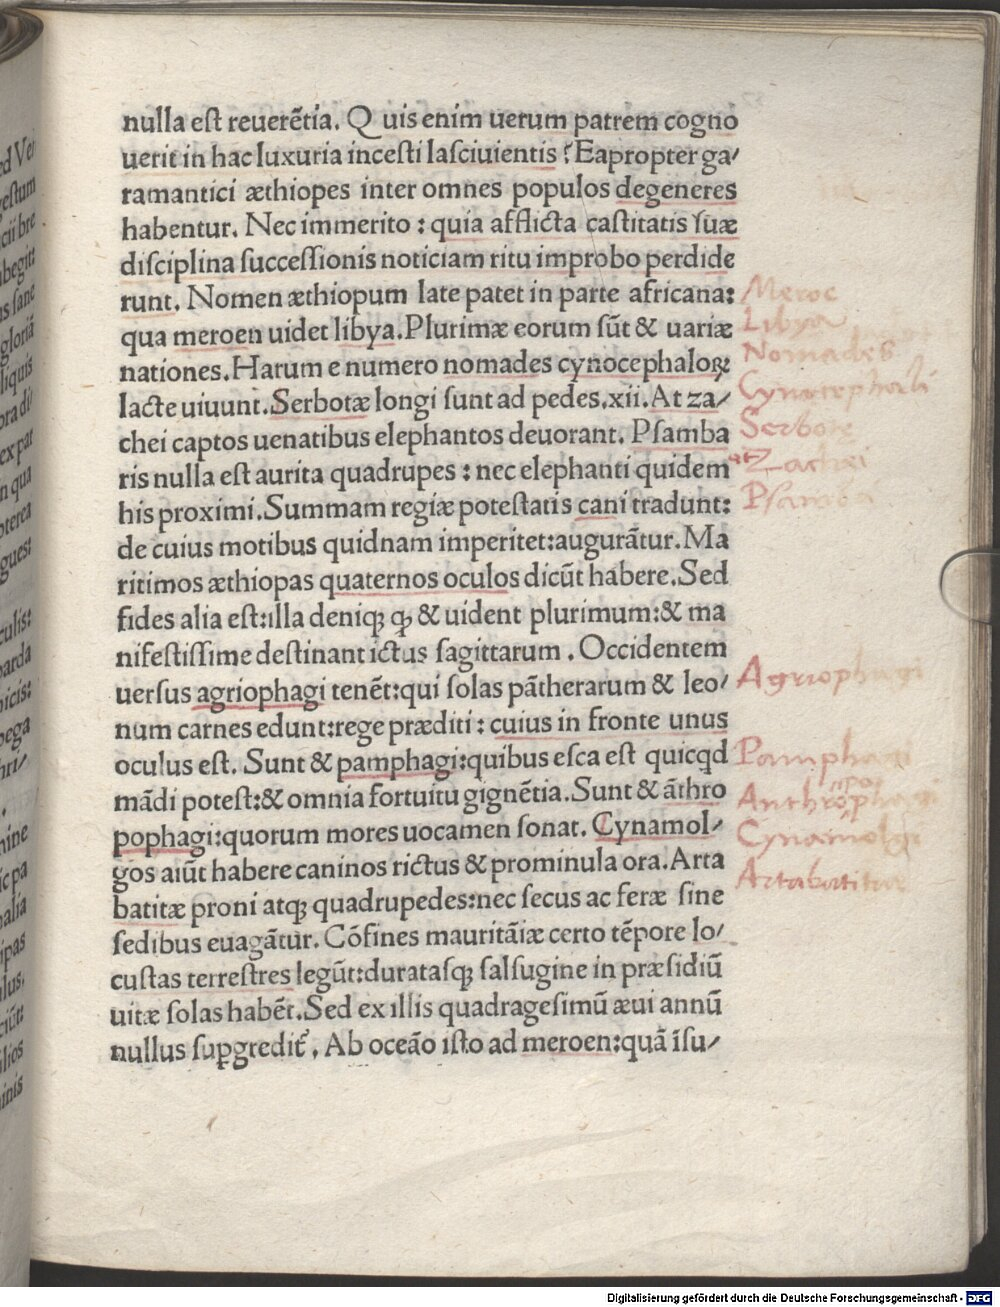 nulla eſt reuerẽtia. Q uis enim uerum patrem cogno
uerit in hac luxuria inceſti laſciuientis ? Eapropter ga/
ramantici æthiopes inter omnes populos degeneres
habentur. Nec immerito : quia afflicta caſtitatis ſuæ
diſciplina ſucceſſionis noticiam ritu improbo perdide
runt. Nomen æthiopum late patet in parte africana:
qua meroen uidet libya. Plurimæ eorum ſũt & uariæ
nationes. Harum e numero nomades cynocephaloꝝ
lacte uiuunt. Serbotæ longi ſunt ad pedes.xii. At za/
chei captos uenatibus elephantos deuorant. Pſamba
ris nulla eſt aurita quadrupes : nec elephanti quidem
his proximi. Summam regiæ poteſtatis cani tradunt:
de cuius motibus quidnam imperitet:augurãtur. Ma
ritimos æthiopas quaternos oculos dicũt habere. Sed
fides alia eſt:illa deniqꝫ ꝙ & uident plurimum:& ma
nifeſtiſſime deſtinant ictus ſagittarum . Occidentem
uerſus agriophagi tenẽt:qui ſolas pãtherarum & leo/
num carnes edunt:rege præditi : cuius in fronte unus
oculus eſt. Sunt & pamphagi:quibus eſca eſt quicqd
mãdi poteſt:& omnia fortuitu gignẽtia. Sunt & ãthro
pophagi:quorum mores uocamen ſonat. Cynamol/
gos aiũt habere caninos rictus & prominula ora. Arta
batitæ proni atqꝫ quadrupedes:nec ſecus ac feræ ſine
ſedibus euagãtur. Cõfines mauritãiæ certo tẽpore lo/
cuſtas terreſtres legũt:durataſqꝫ ſalſugine in præſidiũ
uitæ ſolas habẽt. Sed ex illis quadrageſimũ æui annũ
nullus ſuꝑgredit᷑. Ab oceão iſto ad meroen:quã ĩſu/
Meroe
Libya
Nomades
Cynocephali
Serbotę
Zachei
Pſamba
Agriophagi
Pamphagi
Anthropophagi
Cynamolgi
Artabatitæ
ed Ve
geſtum
cii bre
abegit:
us ſane
gloriã
liquis
ora di/
ex pat
n qua
gues:
culis:
parda
nicis:
pega
hri/
nine
ic pa
nalia
ipas
ulus,
ciũt:
lios
inis
Digitalisierung gefördert durch die Deutsche Forschungsgemeinschaft - DFG